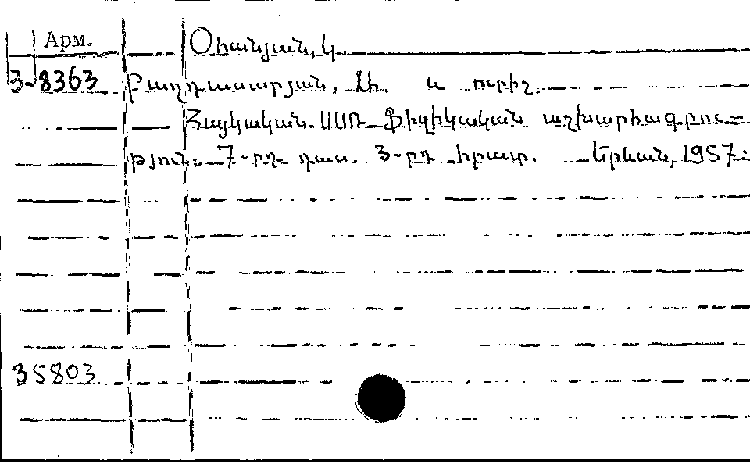 Арм.
Օհանյան, Կ
3-8363 Բաղդասարյան, Ա. և ուրիշ.
Հայկական ՍՍՌ Ֆիզիկական աշխարհագրու-
թյուն. 7-րդ դաս. 3-րդ հրատ. Երևան, 1957.
35803